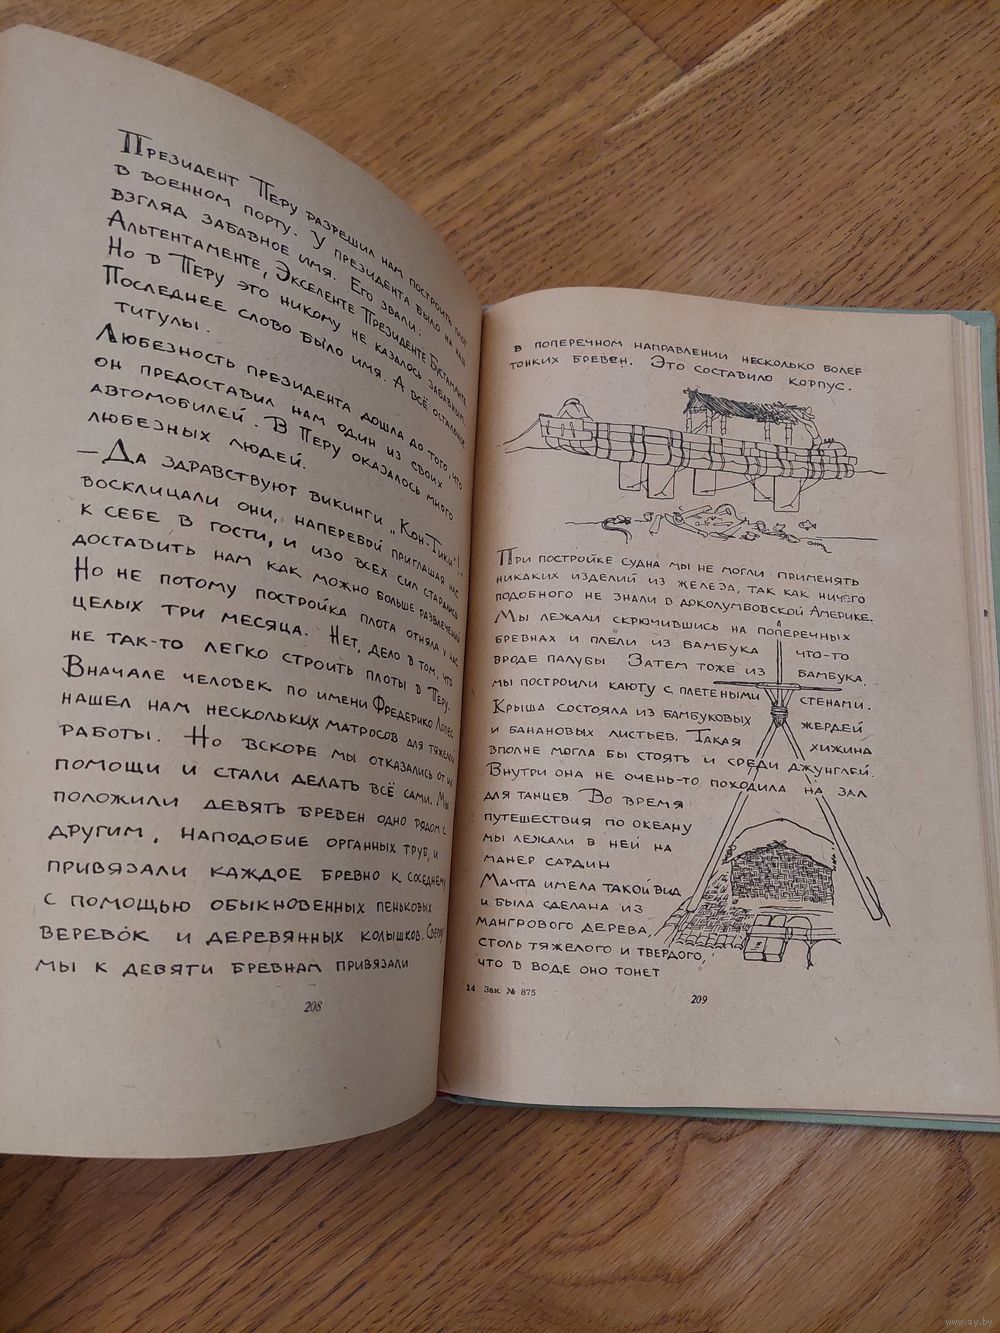 Президент Перу разрешил нам построить плот
в военном порту. У президента было на наш
взгляд забавное имя. Его звали:
Альтентаменте, Экселенте Президенте Бустаманте.
Но в Перу это никому не казалось забавным.
Последнее слово было имя. А всё остальное
титулы.
Любезность президента дошла до того, что
он предоставил нам один из своих
автомобилей. В Перу оказалось много
любезных людей.
— Да здравствуют викинги „Кон-Тики"! –
восклицали они, наперебой приглашая нас
к себе в гости, и изо всех сил старались
доставить нам как можно больше развлечений
Но не потому постройка плота отняла у нас
целых три месяца. Нет, дело в том, что
не так-то легко строить плоты в Перу.
Вначале человек по имени Фредерико Лопес
нашел нам нескольких матросов для тяжелой
работы. Но вскоре мы отказались от их
помощи и стали делать всё сами. Мы
положили девять бревен одно рядом с
другим, наподобие органных труб, и
привязали каждое бревно к соседнему
с помощью обыкновенных пеньковых
веревок и деревянных колышков. Сверху
мы к девяти бревнам привязали
208
в поперечном направлении несколько более
тонких бревен. Это составило корпус.
При постройке судна мы не могли применять
никаких изделий из железа, так как ничего
подобного не знали в доколумбовской Америке.
Мы лежали скрючившись на поперечных
бревнах и плели из бамбука что-то
вроде палубы Затем тоже из бамбука,
мы построили каюту с плетеными стенами.
Крыша состояла из бамбуковых жердей
и банановых листьев. Такая хижина
вполне могла бы стоять и среди джунглей.
Внутри она не очень-то походила на зал
для танцев. Во время
путешествия по океану
мы лежали в ней на
манер сардин
Мачта имела такой вид
и была сделана из
мангрового дерева,
столь тяжелого и твердого,
что в воде оно тонет
14 Зак. № 875
209
www.ay.by